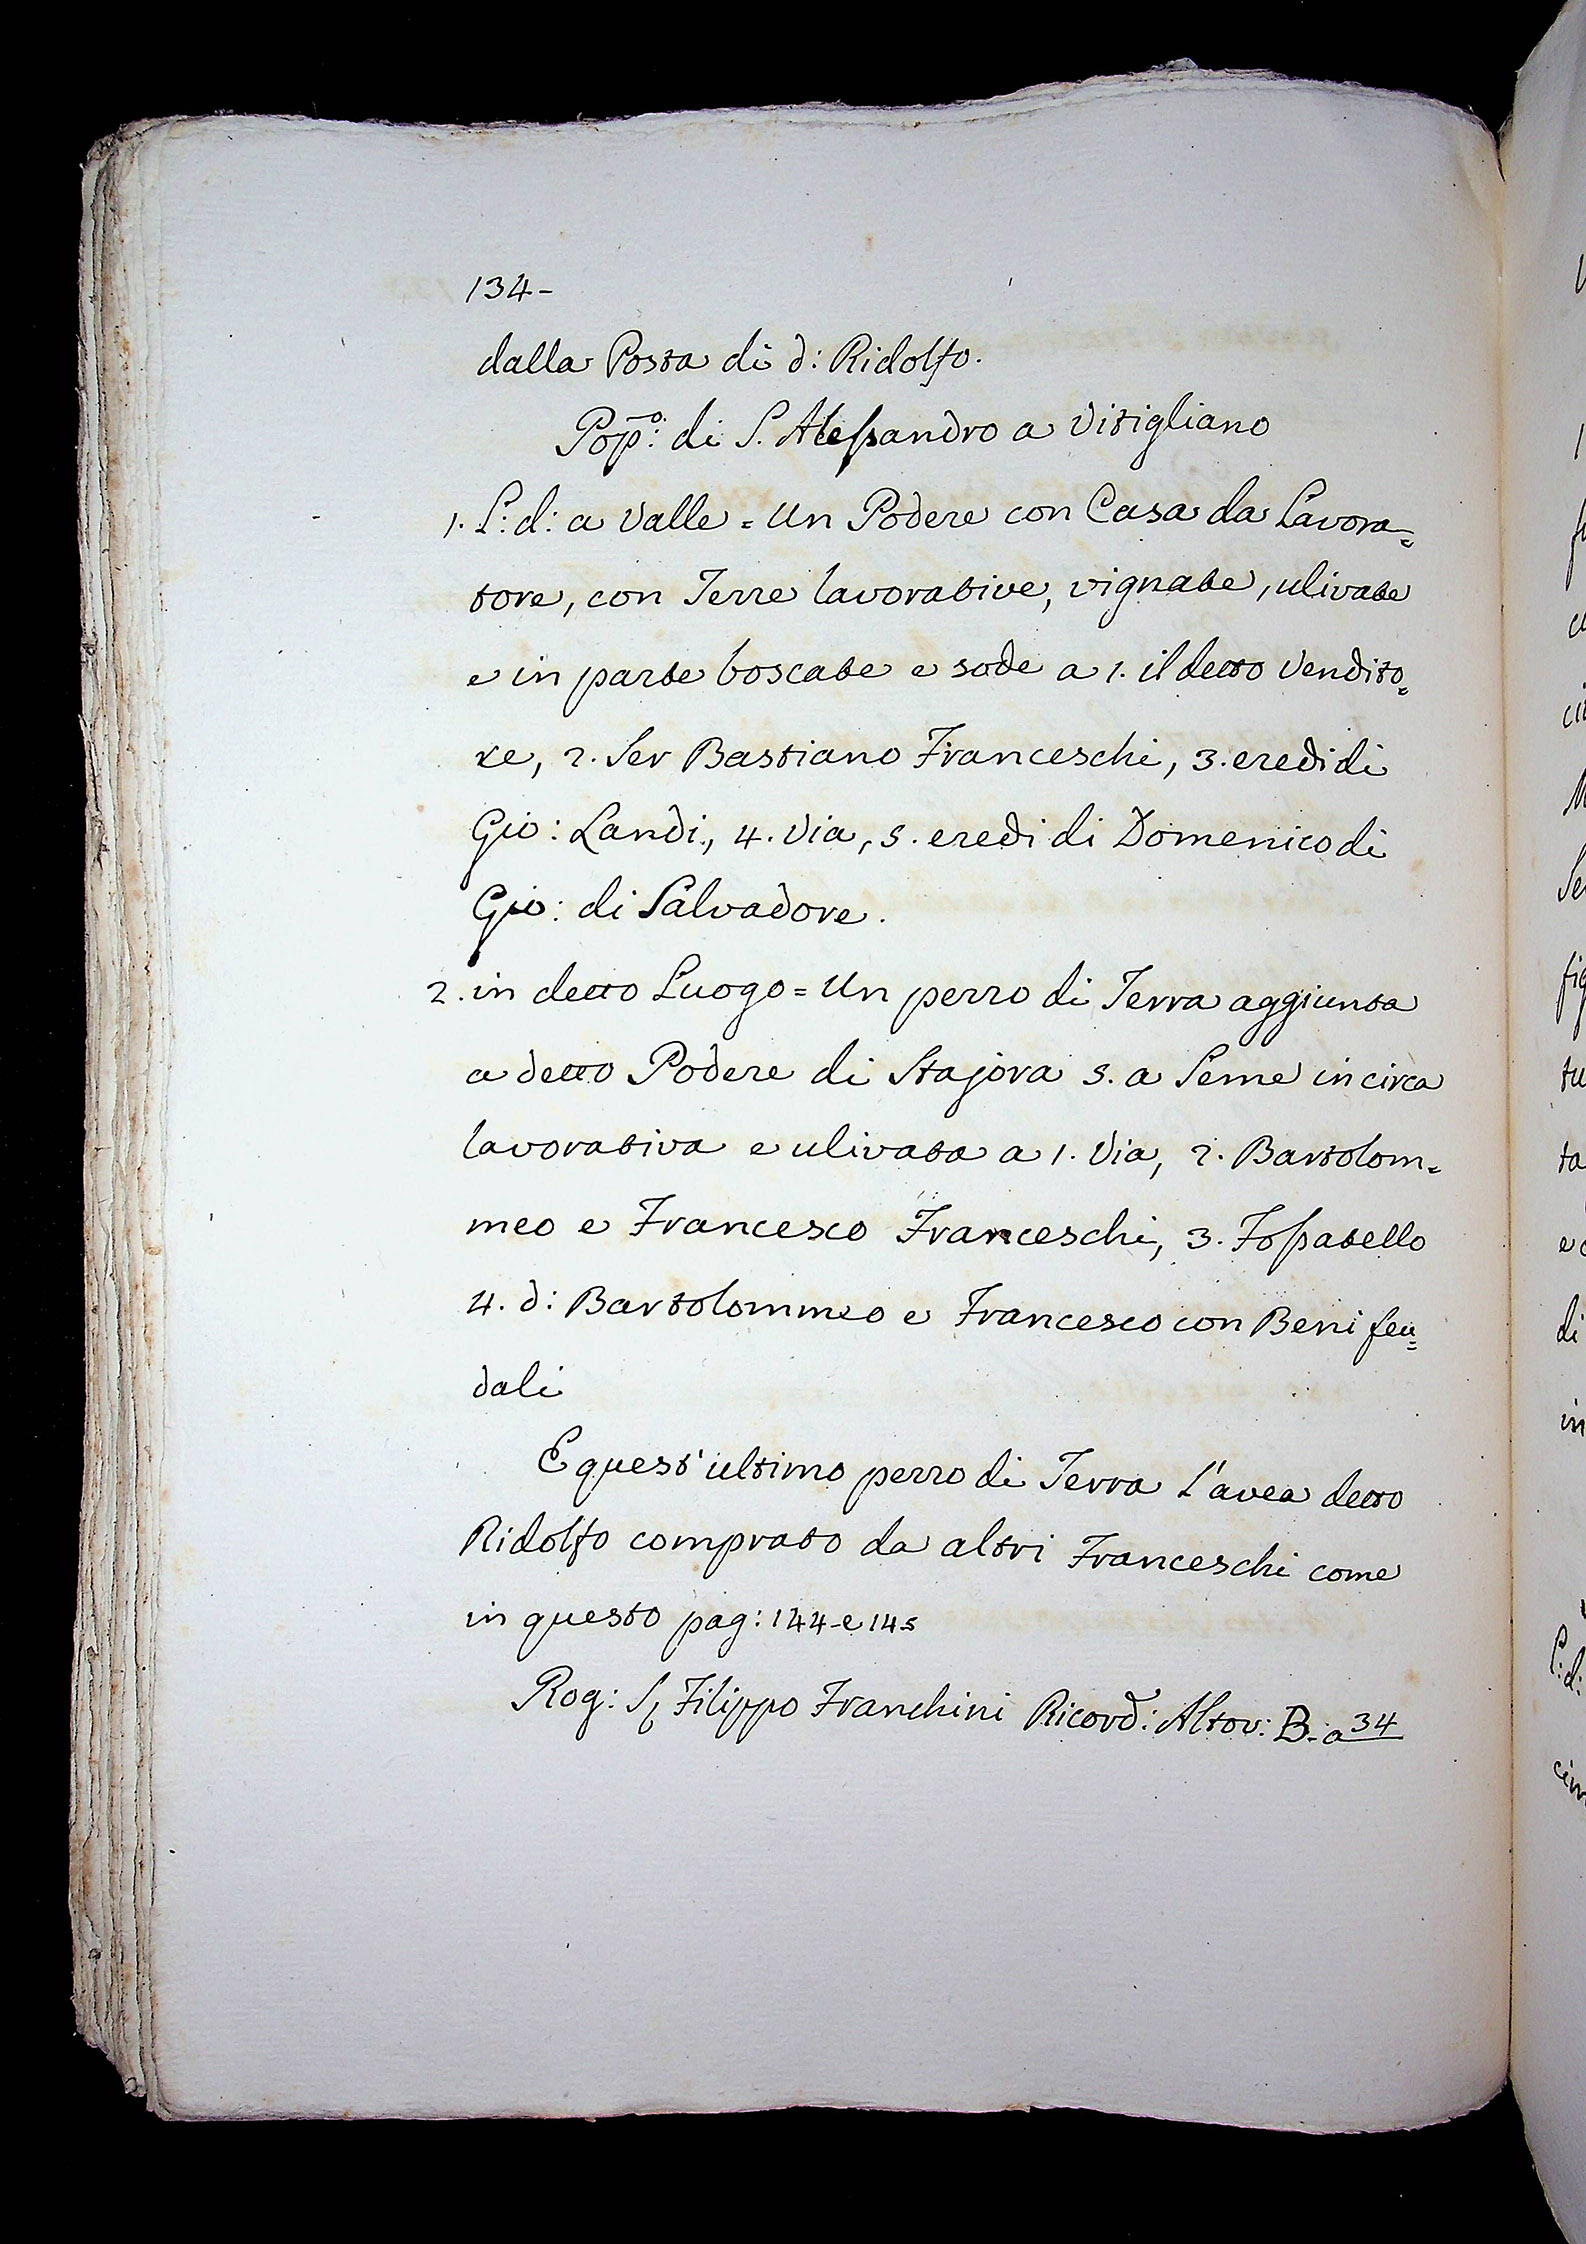 134-
dalla Posta di d: Ridolfo.
Pop̄.º: di S. Alessandro a Vitigliano
1. L: d: a Valle = Un Podere con Casa da Lavora=
tore, con Terre lavorative, vignate, ulivate
e in parte boscate e sode a 1. il detto Vendito=
re, 2. Ser Bastiano Franceschi, 3. eredi di
Gio: Landi, 4. Via, 5. eredi di Domenico di
Gio: di Salvadore.
2. in detto Luogo = Un pezzo di Terra aggiunta
a detto Podere di Stajora 5. a Seme in circa
lavorativa e ulivata a 1. Via, 2. Bartolom=
meo e Francesco Franceschi, 3. Fossatello
4. d: Bartolommeo e Francesco con Beni feu=
dali
E quest'ultimo pezzo di Terra l'avea detto
Ridolfo comprato da altri Franceschi come
in questo pag: 144-e 145
Rog: S. Filippo Franchini Ricord: Altov: B. a 34